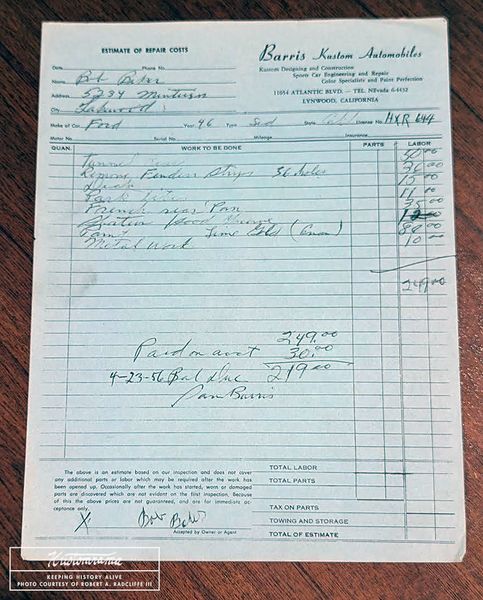 ESTIMATE OF REPAIR COSTS
Barris Kustom Automobiles
Kustom Designing and Construction
Sports Car Engineering and Repair
Color Specialists and Paint Perfection
11054 ATLANTIC BLVD. — TEL. NEvada 6-4432
LYNWOOD, CALIFORNIA
Date Phone No.
Name Bob Baker
Address 5234
City Lakewood
Make of Car Ford Year 46 Type Sed State Calif License No. HXR 644
Motor No. Serial No. Mileage Insurance
QUAN. WORK TO BE DONE PARTS LABOR
Tunnel 50.00
Remove Fender 36 holes
Deck
Park
French rear Pan 35
hood 12.00
Paint Lime Gold
Metal work 10.00
249.00
249.00
Paid on acct 30.00
4-23-56 Bal due 219.00
Sam Barris
The above is an estimate based on our inspection and does not cover
any additional parts or labor which may be required after the work has
been opened up. Occasionally after the work has started, worn or damaged
parts are discovered which are not evident on the first inspection. Because
of this the above prices are not guaranteed, and are for immediate ac-
ceptance only.
X. Bob Baker
Accepted by Owner or Agent
TOTAL LABOR
TOTAL PARTS
TAX ON PARTS
TOWING AND STORAGE
TOTAL OF ESTIMATE
Kustomrama
KEEPING HISTORY ALIVE
PHOTO COURTESY OF ROBERT A. RADCLIFFE III